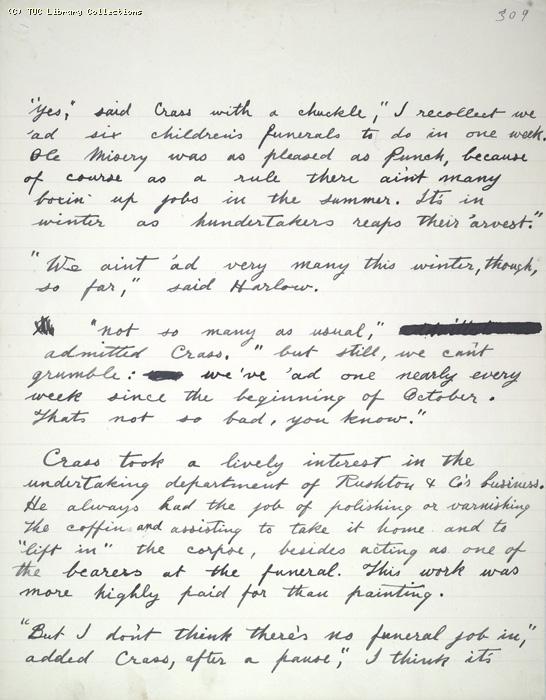 (C) TUC Library Collections
309
"Yes," said Crass with a chuckle, "I recollect we
'ad six children's funerals to do in one week.
Ole Misery was as pleased as Punch, because
of course as a rule there aint many
boxin' up jobs in the summer. It's in
winter as hundertakers reaps their 'arvest."
"We aint 'ad very many this winter, though,
so far," said Harlow.
"not so many as usual,"
admitted Crass. "but still, we can't
grumble: we've 'ad one nearly every
week since the beginning of October.
Thats not so bad, you know."
Crass took a lively interest in the
undertaking department of Rushton & Co's business.
He always had the job of polishing or varnishing
the coffin and assisting to take it home and to
"lift in" the corpse, besides acting as one of
the bearers at the funeral. This work was
more highly paid for than painting.
"But I don't think there's no funeral job in,"
added Crass, after a pause, "I think it's